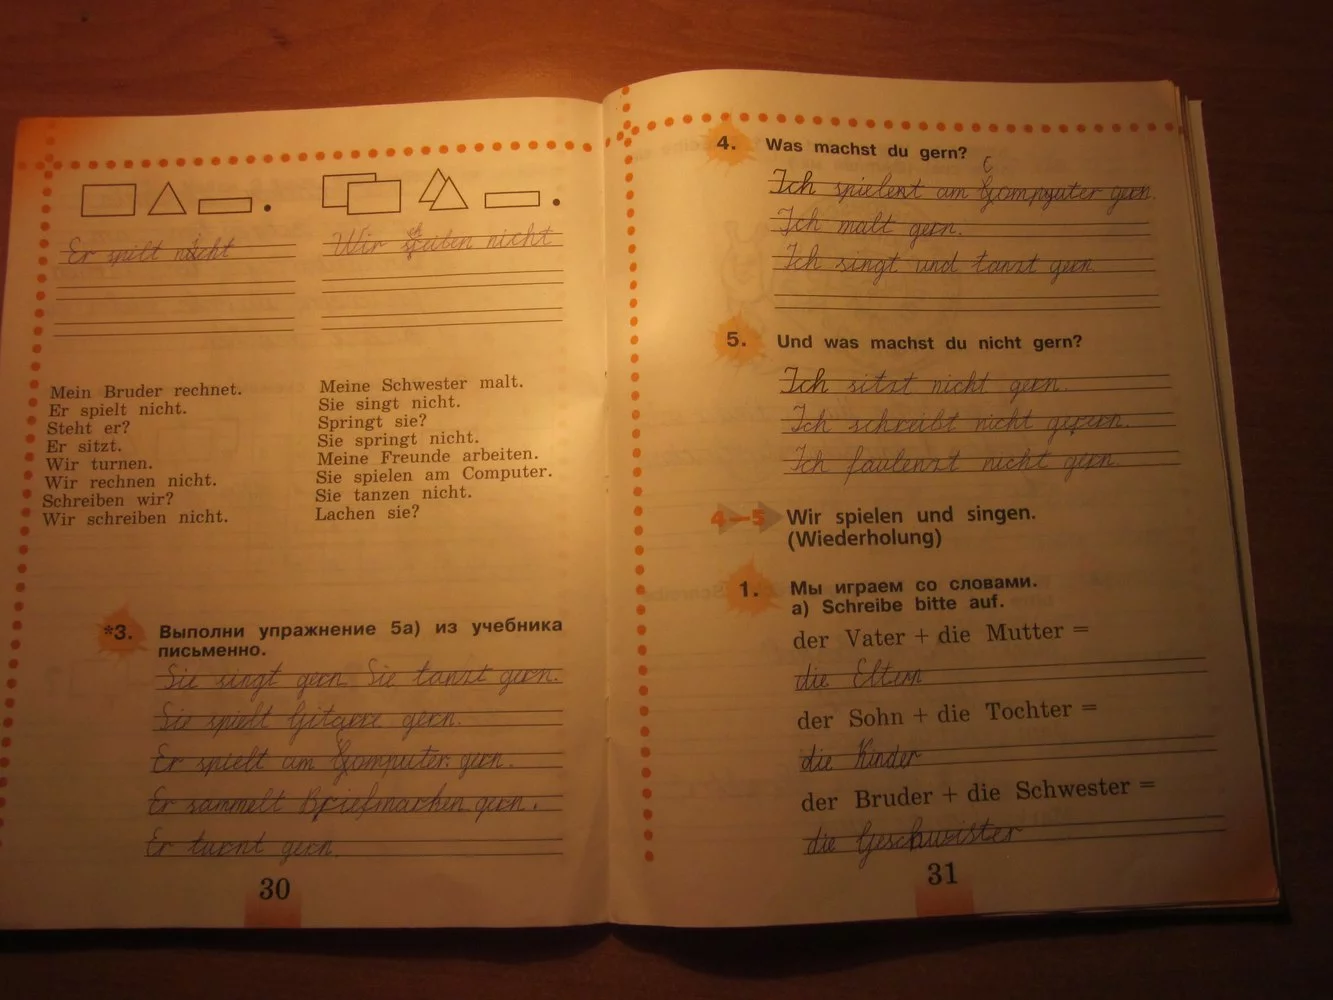 Er spilt nicht
Wir spielen nicht
Mein Bruder rechnet.
Er spielt nicht.
Steht er?
Er sitzt.
Wir turnen.
Wir rechnen nicht.
Schreiben wir?
Wir schreiben nicht.
Meine Schwester malt.
Sie singt nicht.
Springt sie?
Sie springt nicht.
Meine Freunde arbeiten.
Sie spielen am Computer.
Sie tanzen nicht.
Lachen sie?
*3. Выполни упражнение 5а) из учебника
письменно.
Sie singt gern. Sie tanzt gern.
Sie spielt Gitarre gern.
Er spielt am Computer gern.
Er sammelt Briefmarken gern.
Er turnt gern.
30
4. Was machst du gern?
Ich spielent am Computer gern.
Ich malt gern.
Ich singt und tanzt gern
5. Und was machst du nicht gern?
Ich sitzt nicht gern.
Ich schreibt nicht gern.
Ich faulenzt nicht gern.
4—5 Wir spielen und singen.
(Wiederholung)
1. Мы играем со словами.
a) Schreibe bitte auf.
der Vater + die Mutter =
die Eltern
der Sohn + die Tochter =
die Kinder
der Bruder + die Schwester =
die Geschwister
31